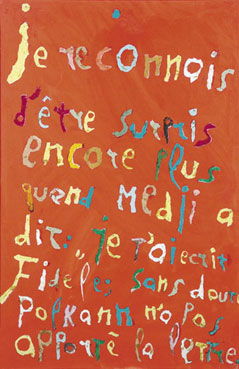 je reconnois
d'être surpris
encore plus
quand medji a
dit: "je t'aiecrit
Fideles sans dout
Polkann n'a pas
apporté la lettre